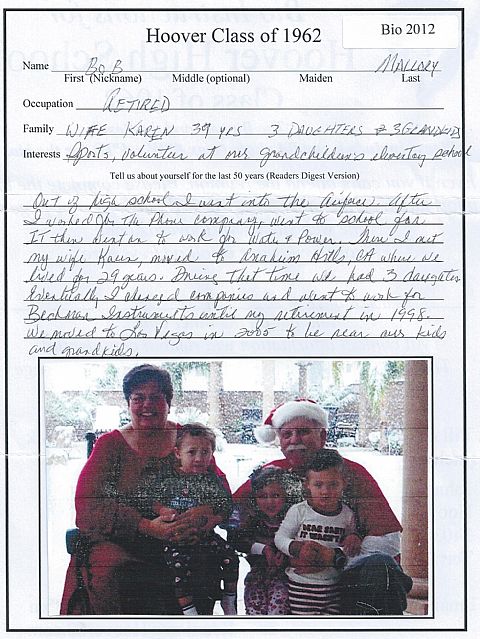 Hoover Class of 1962
Bio 2012
Name BOB MALLORY
First (Nickname) Middle (optional) Maiden Last
Occupation RETIRED
Family WIFE KAREN 39 YRS 3 DAUGHTERS & 3 GRANDKIDS
Interests Sports, volunteer at our grandchildren's elementary school
Tell us about yourself for the last 50 years (Readers Digest Version)
Out of high school I went into the Airforce. After
I worked for the Phone company, went to school for
IT then went on to work for Water & Power. There I met
my wife Karen, moved to Anaheim Hills, CA where we
lived for 29 years. During that time we had 3 daughters
Eventually I changed companies and went to work for
Beckman Instruments until my retirement in 1998.
We moved to Las Vegas in 2005 to be near our kids
and grandkids.
DEAR SANTA
IT WASN'T